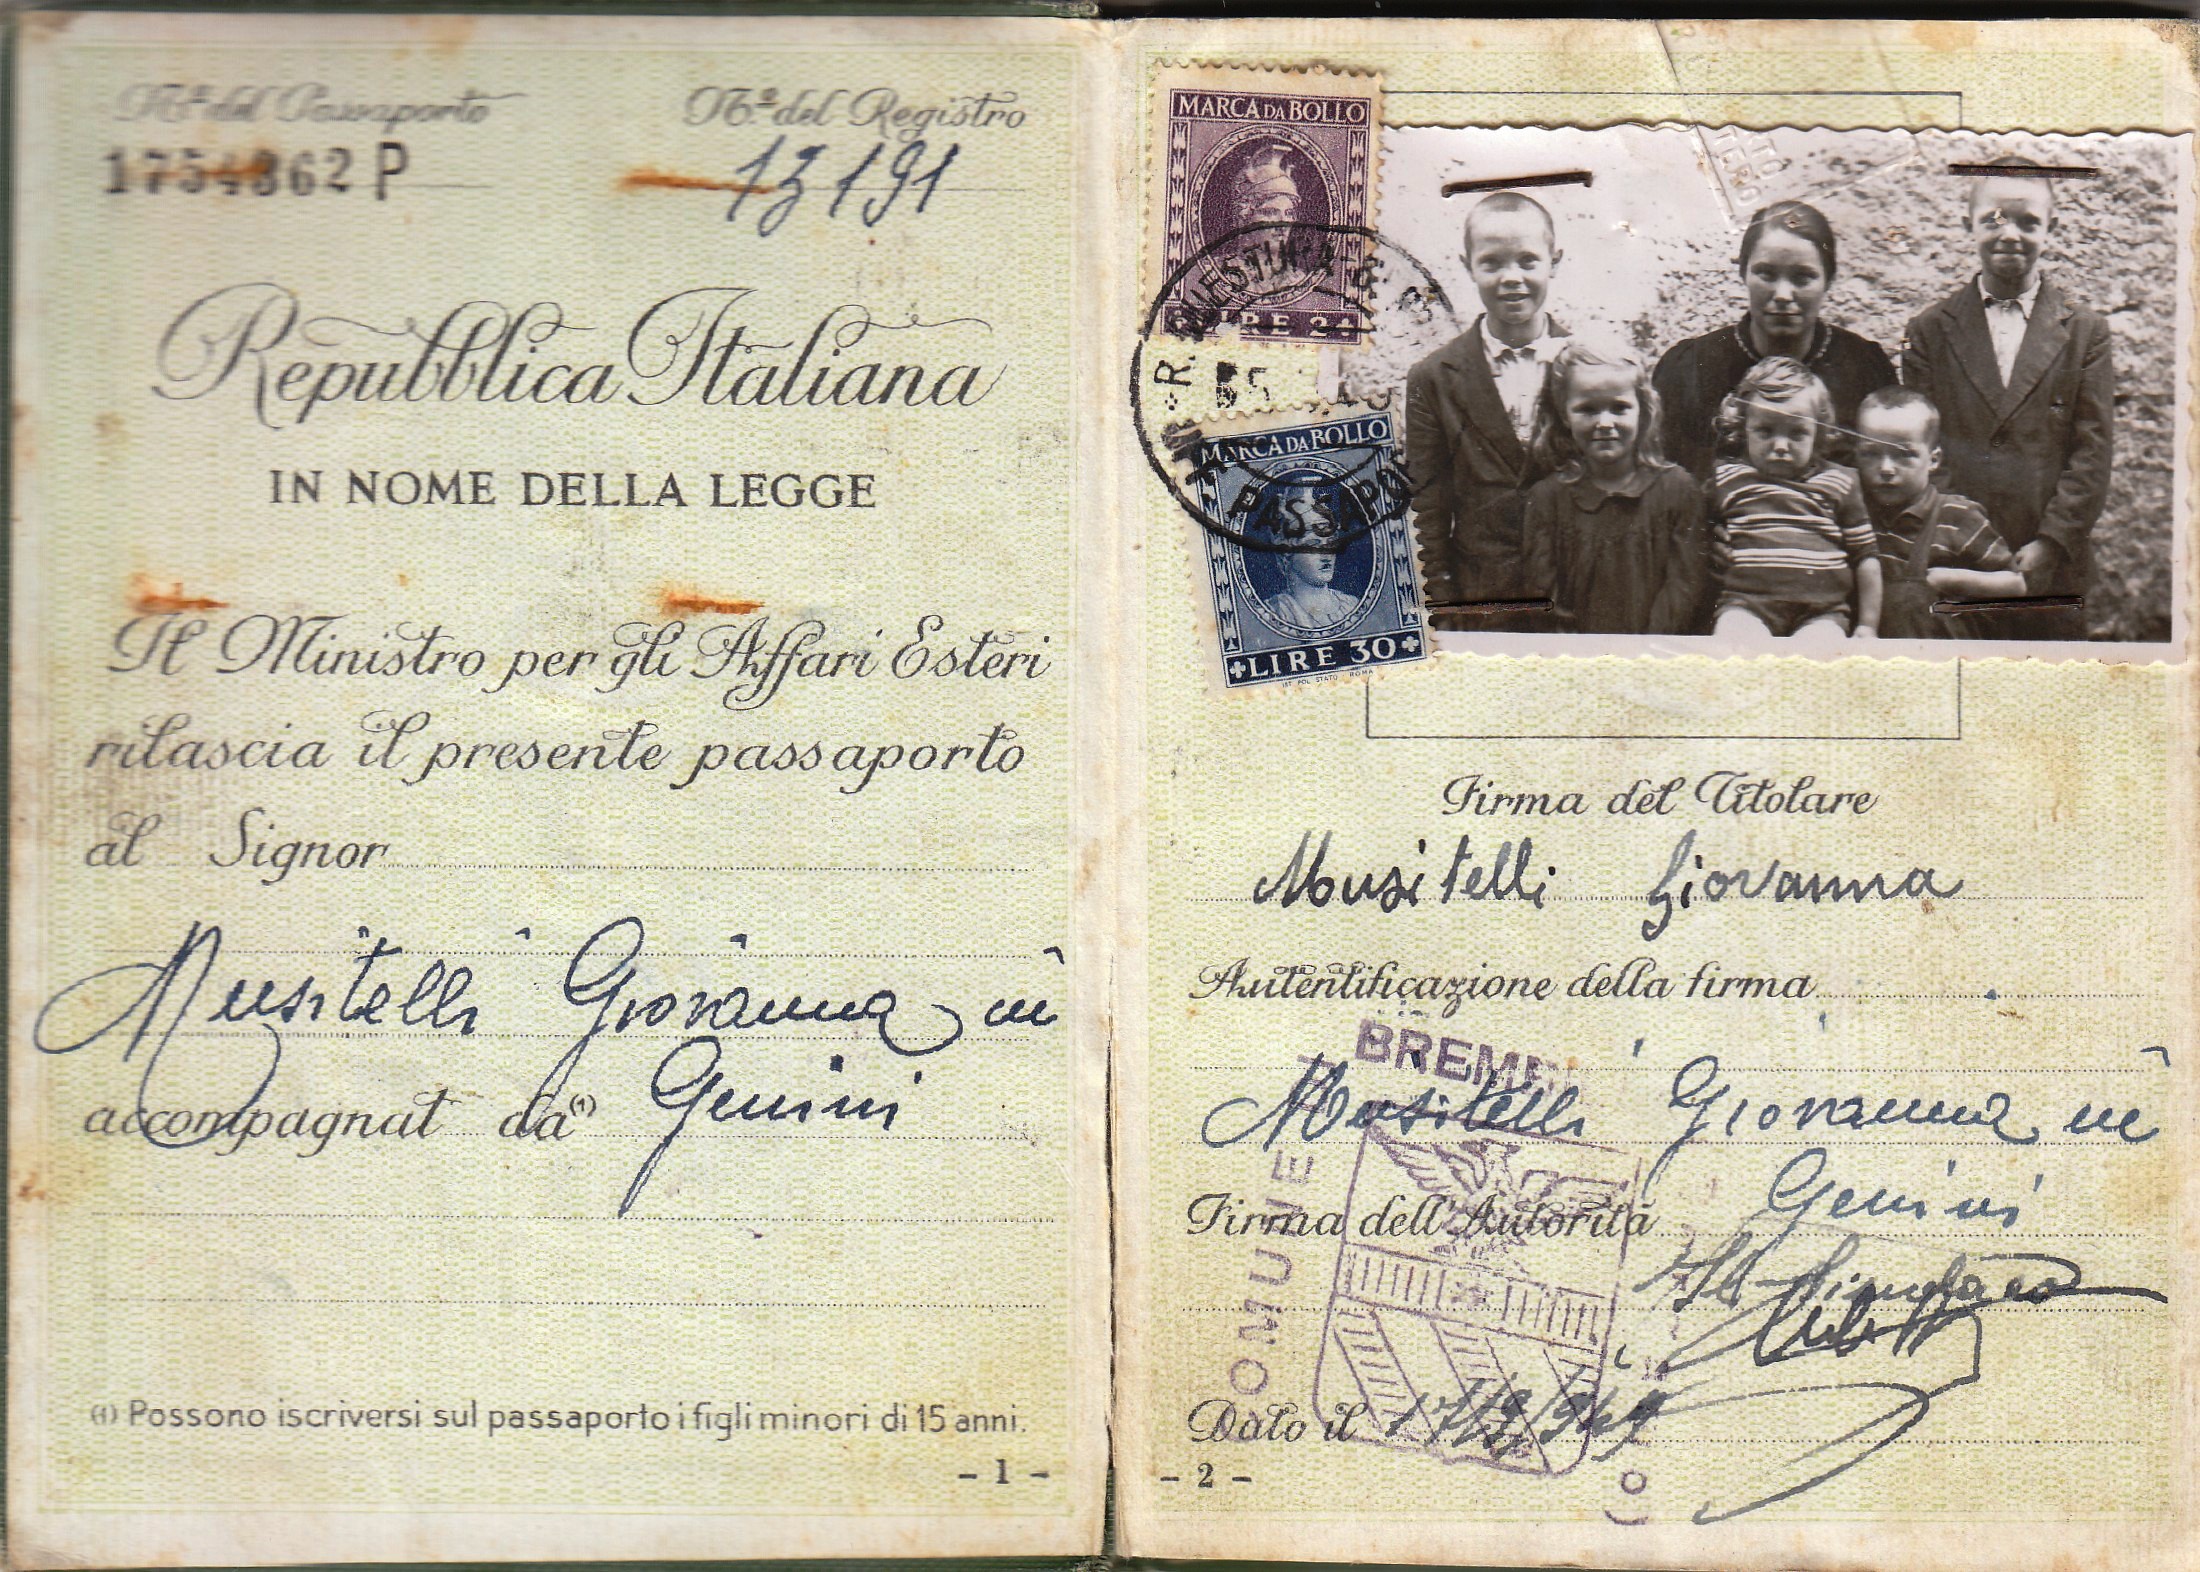 Nº del Passaporto
Nº del Registro
1754862 P
13191
Repubblica Italiana
IN NOME DELLA LEGGE
Il Ministro per gli Affari Esteri
rilascia il presente passaporto
al Signor
Musitelli Giovanna in
accompagnat da (1) Genini
(1) Possono iscriversi sul passaporto i figli minori di 15 anni.
- 1 -
MARCA DA BOLLO
LIRE 24
PASSAPO
MARCA DA BOLLO
LIRE 30
IST. POL. STATO ROMA
Firma del Titolare
Musitelli Giovanna
Autentificazione della firma
BREM
Musitelli Giovanna in
Genini
Firma dell'Autorità
Il Sindaco
COMUNE
Dato il 17/9/949
- 2 -